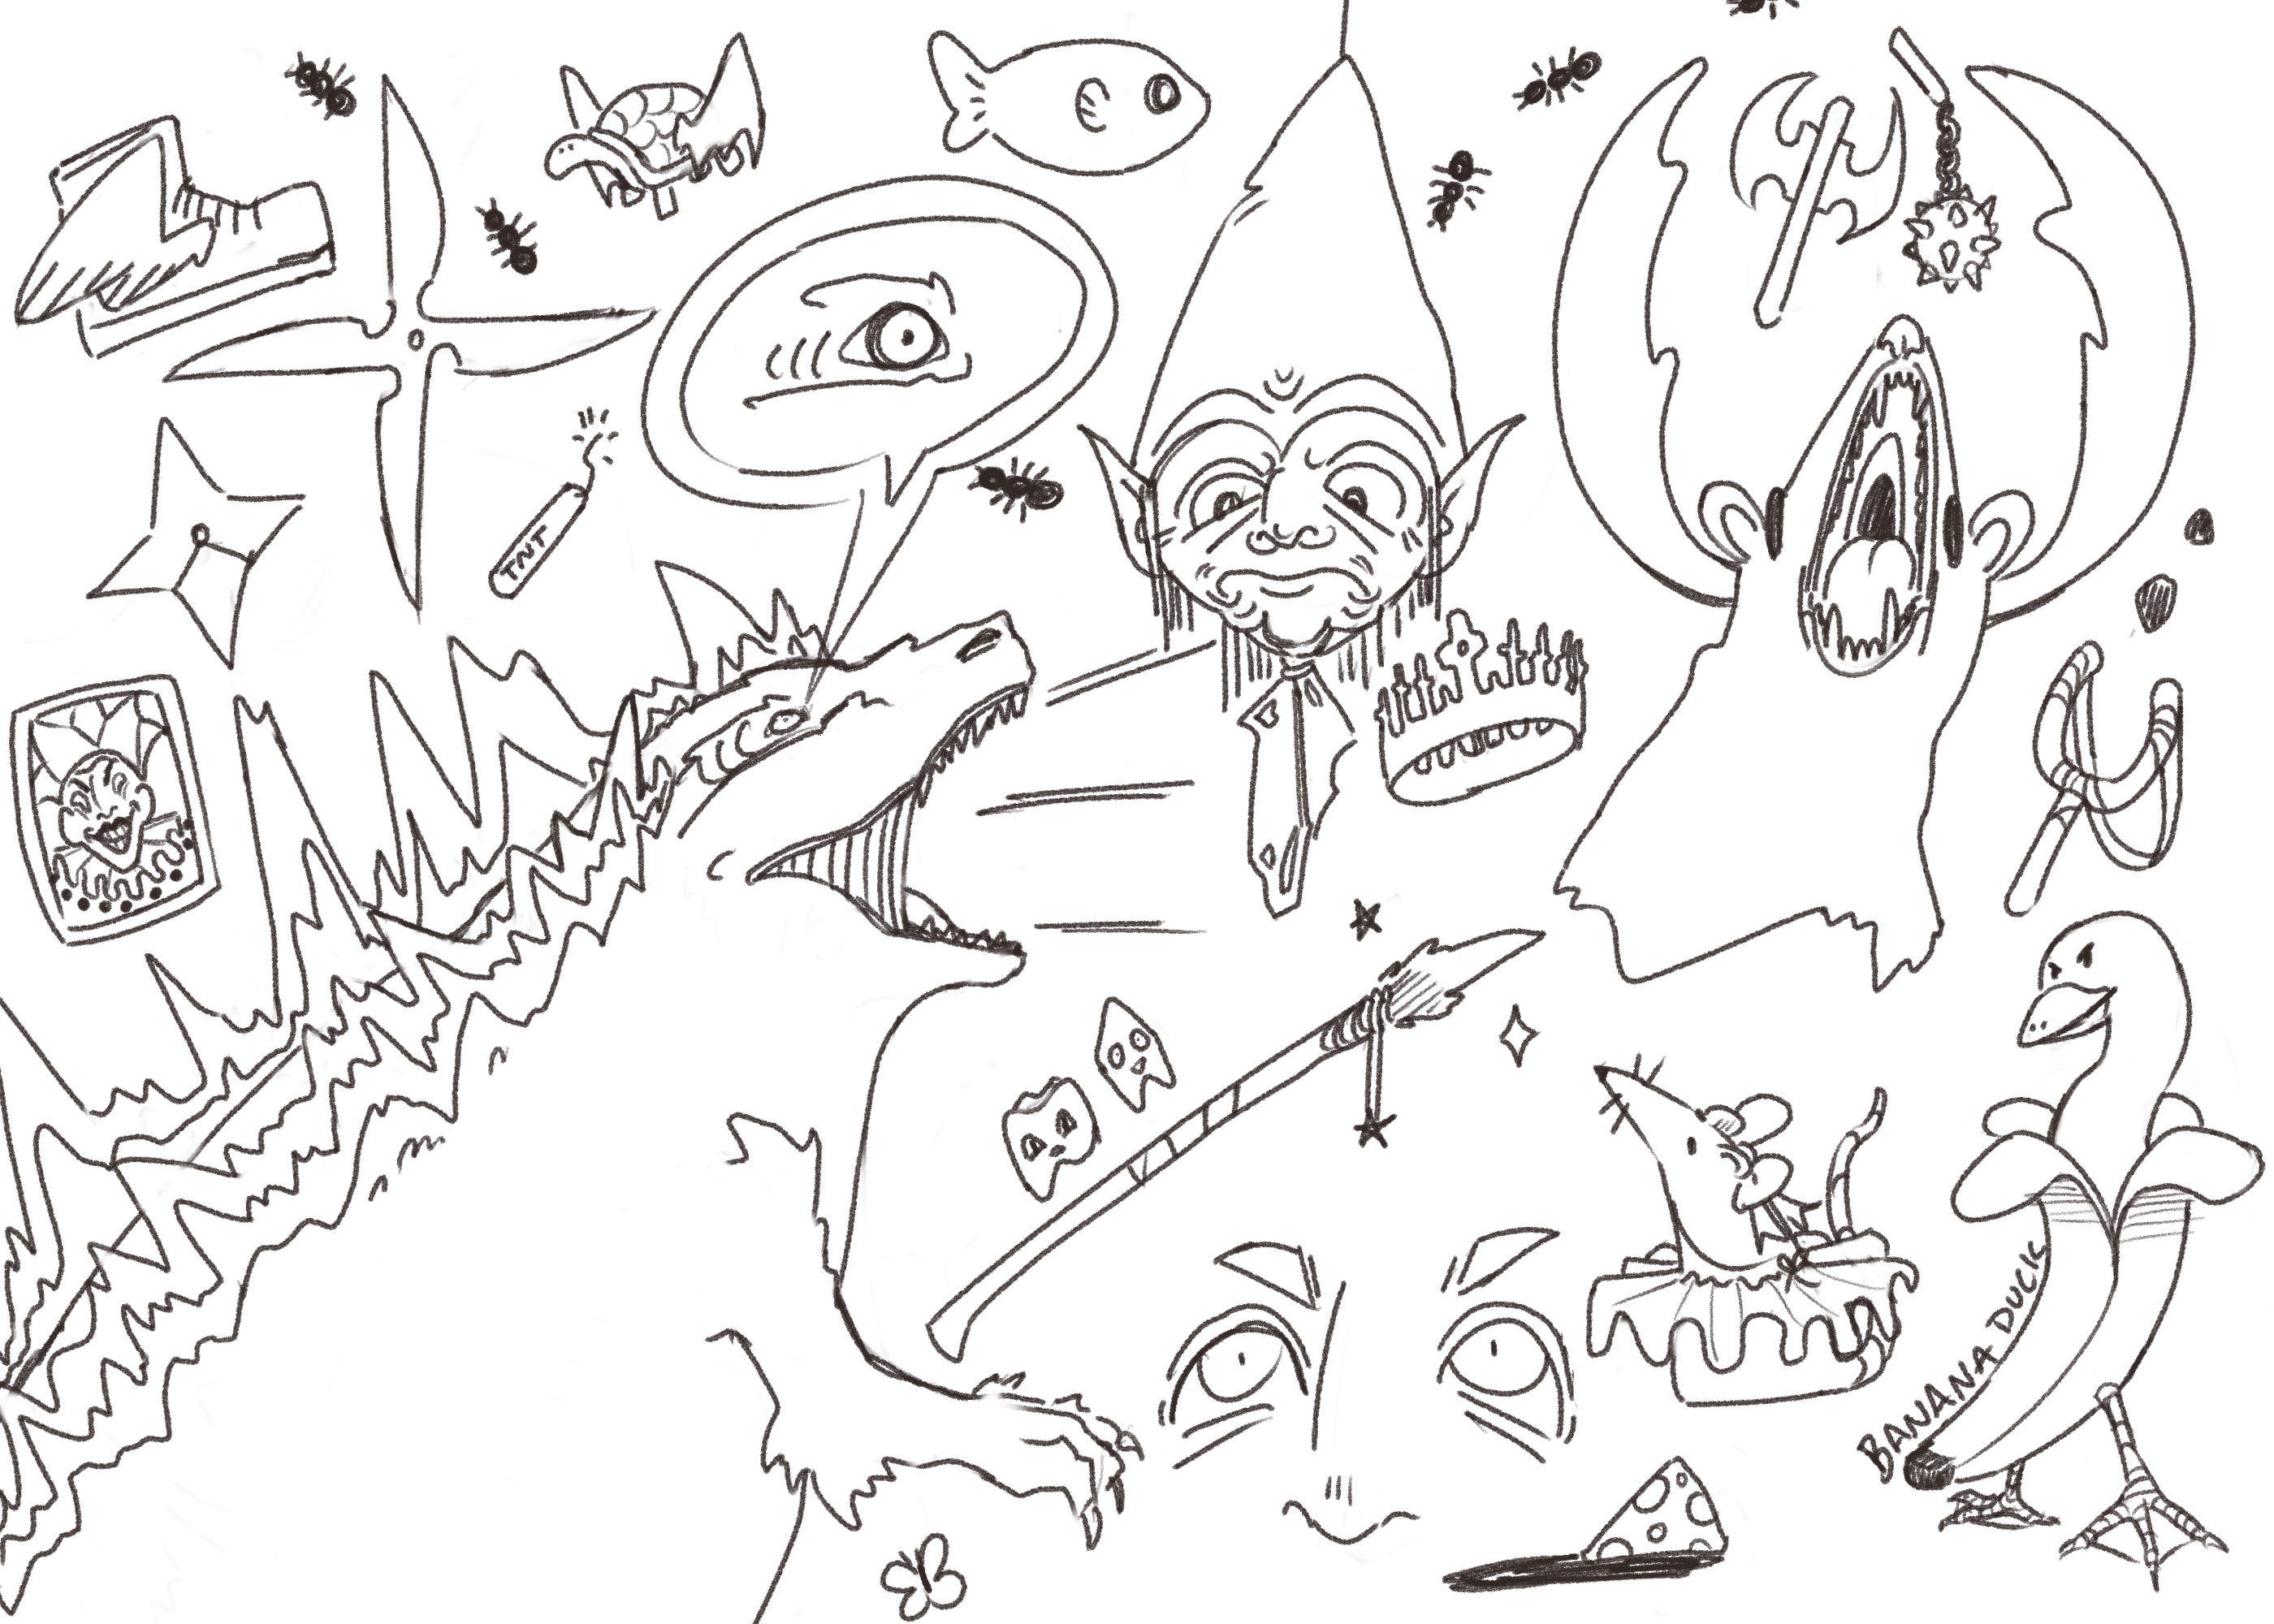 TNT
BANANA DUCK